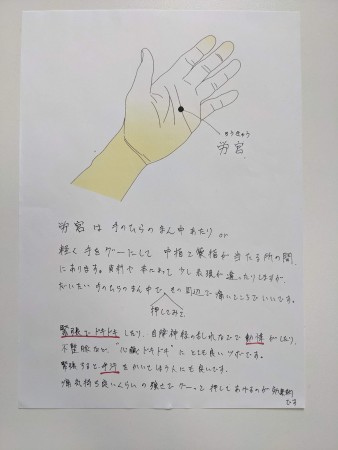 ろうきゅう
労宮
労宮は 手のひらのまん中あたり or
軽く手をグーにして 中指と薬指が当たる所の間
にあります。資料や本によって少し表現が違ったりしますが、
だいたい手のひらのまん中で、その周辺で痛いところでいいです。
押してみて
緊張でドキドキしたり、自律神経の乱れなどで動悸がしたり、
不整脈など、"心臓ドキドキ"にとても良いツボです。
緊張すると手汗をかいてしまう人にも良いです。
痛気持ち良いくらいの強さでグーっと押してあげるのが効果的
です